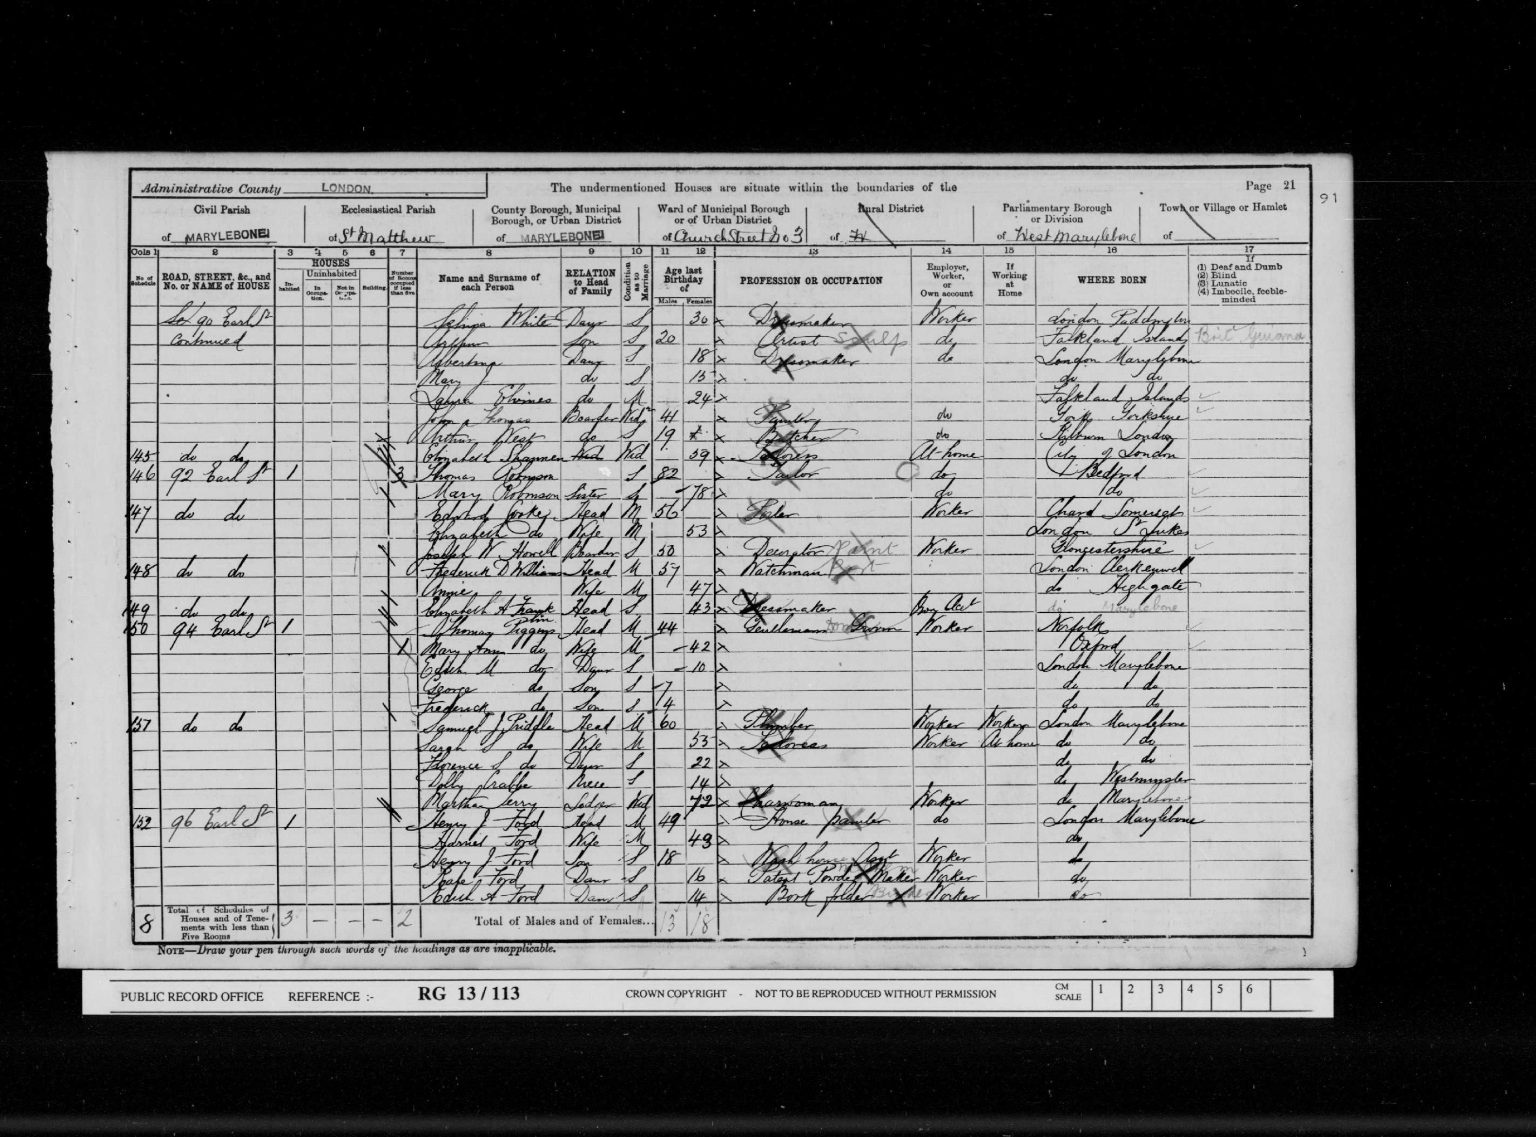 Administrative County LONDON.
The undermentioned Houses are situate within the boundaries of the
Page 21
91
Civil Parish
of MARYLEBONE
Ecclesiastical Parish
of St Matthew
County Borough, Municipal Borough, or Urban District
of MARYLEBONE
Ward of Municipal Borough or of Urban District
of Church Street No 3
Rural District
of
Parliamentary Borough or Division
of West Marylebone
Town or Village or Hamlet
of
Cols 1 2 3 4 5 6 7 8 9 10 11 12 13 14 15 16 17
No. of Schedule
ROAD, STREET, &c., and No. or NAME of HOUSE
HOUSES
Inhabited
Uninhabited
In Occupation.
Not in Occupation.
Building
Number of Rooms occupied if less than five
Name and Surname of each Person
RELATION to Head of Family
Condition as to Marriage
Age last Birthday of
Males Females
PROFESSION OR OCCUPATION
Employer, Worker, or Own account
If Working at Home
WHERE BORN
If (1) Deaf and Dumb (2) Blind (3) Lunatic (4) Imbecile, feeble-minded
90 Earl St White Daur S 30 Dressmaker Worker London Paddington
Continued Son S 20 Artist Sculp do Falkland Islands Brit Guiana
Daur S 18 Dressmaker do London Marylebone
Mary J do S 15 do do
Laura do M 24 Falkland Islands
John Thomas Boarder Widr 41 do York Yorkshire
Arthur West do S 19 Butcher do Kilburn London
145 do do Elizabeth Wid Wid 59 Tailoress At home City of London
146 92 Earl St 1 3 Thomas Robinson S 82 Tailor do Bedford
Mary Robinson Sister S 78 do do
147 do do Edward Cooke Head M 56 Worker Chard Somerset
Elizabeth do Wife M 53 London St Lukes
Joseph W Howell Boarder S 50 Decorator Paint Worker Gloucestershire
148 do do Frederick D Williams Head M 57 Watchman London Clerkenwell
Annie Wife M 47 do Highgate
149 do do Elizabeth A Frank Head S 43 Dressmaker Own Act do Marylebone
150 94 Earl St 1 Thomas Piggins Head M 44 Gentlemans Groom Worker Norfolk
Mary Ann do Wife M 42 Oxford
Edith M do Daur S 10 London Marylebone
George do Son S 7 do do
Frederick do Son S 4 do do
151 do do Samuel J Priddle Head M 60 Plumber Worker London Marylebone
Sarah S do Wife M 53 Tailoress Worker At home do do
Florence S do Daur S 22 do do
Dolly Crabbe Niece S 14 do Westminster
Martha Wid 72 Charwoman Worker do Marylebone
152 96 Earl St 1 Henry J Ford Head M 49 House painter do London Marylebone
Harriet Ford Wife M 49 do
Henry J Ford Son S 18 Wash house Asst Worker do
Ford Daur S 16 Patent Powder Maker Worker do
Edith A Ford Daur S 14 Book folder Worker do
8 Total of Schedules of Houses and of Tenements with less than Five Rooms 3 — — — 2 Total of Males and of Females... 13 18
NOTE—Draw your pen through such words of the headings as are inapplicable.
PUBLIC RECORD OFFICE REFERENCE :- RG 13 / 113 CROWN COPYRIGHT - NOT TO BE REPRODUCED WITHOUT PERMISSION CM SCALE 1 2 3 4 5 6